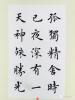 孤獨精舍時
已夜深有一
天神殊勝光